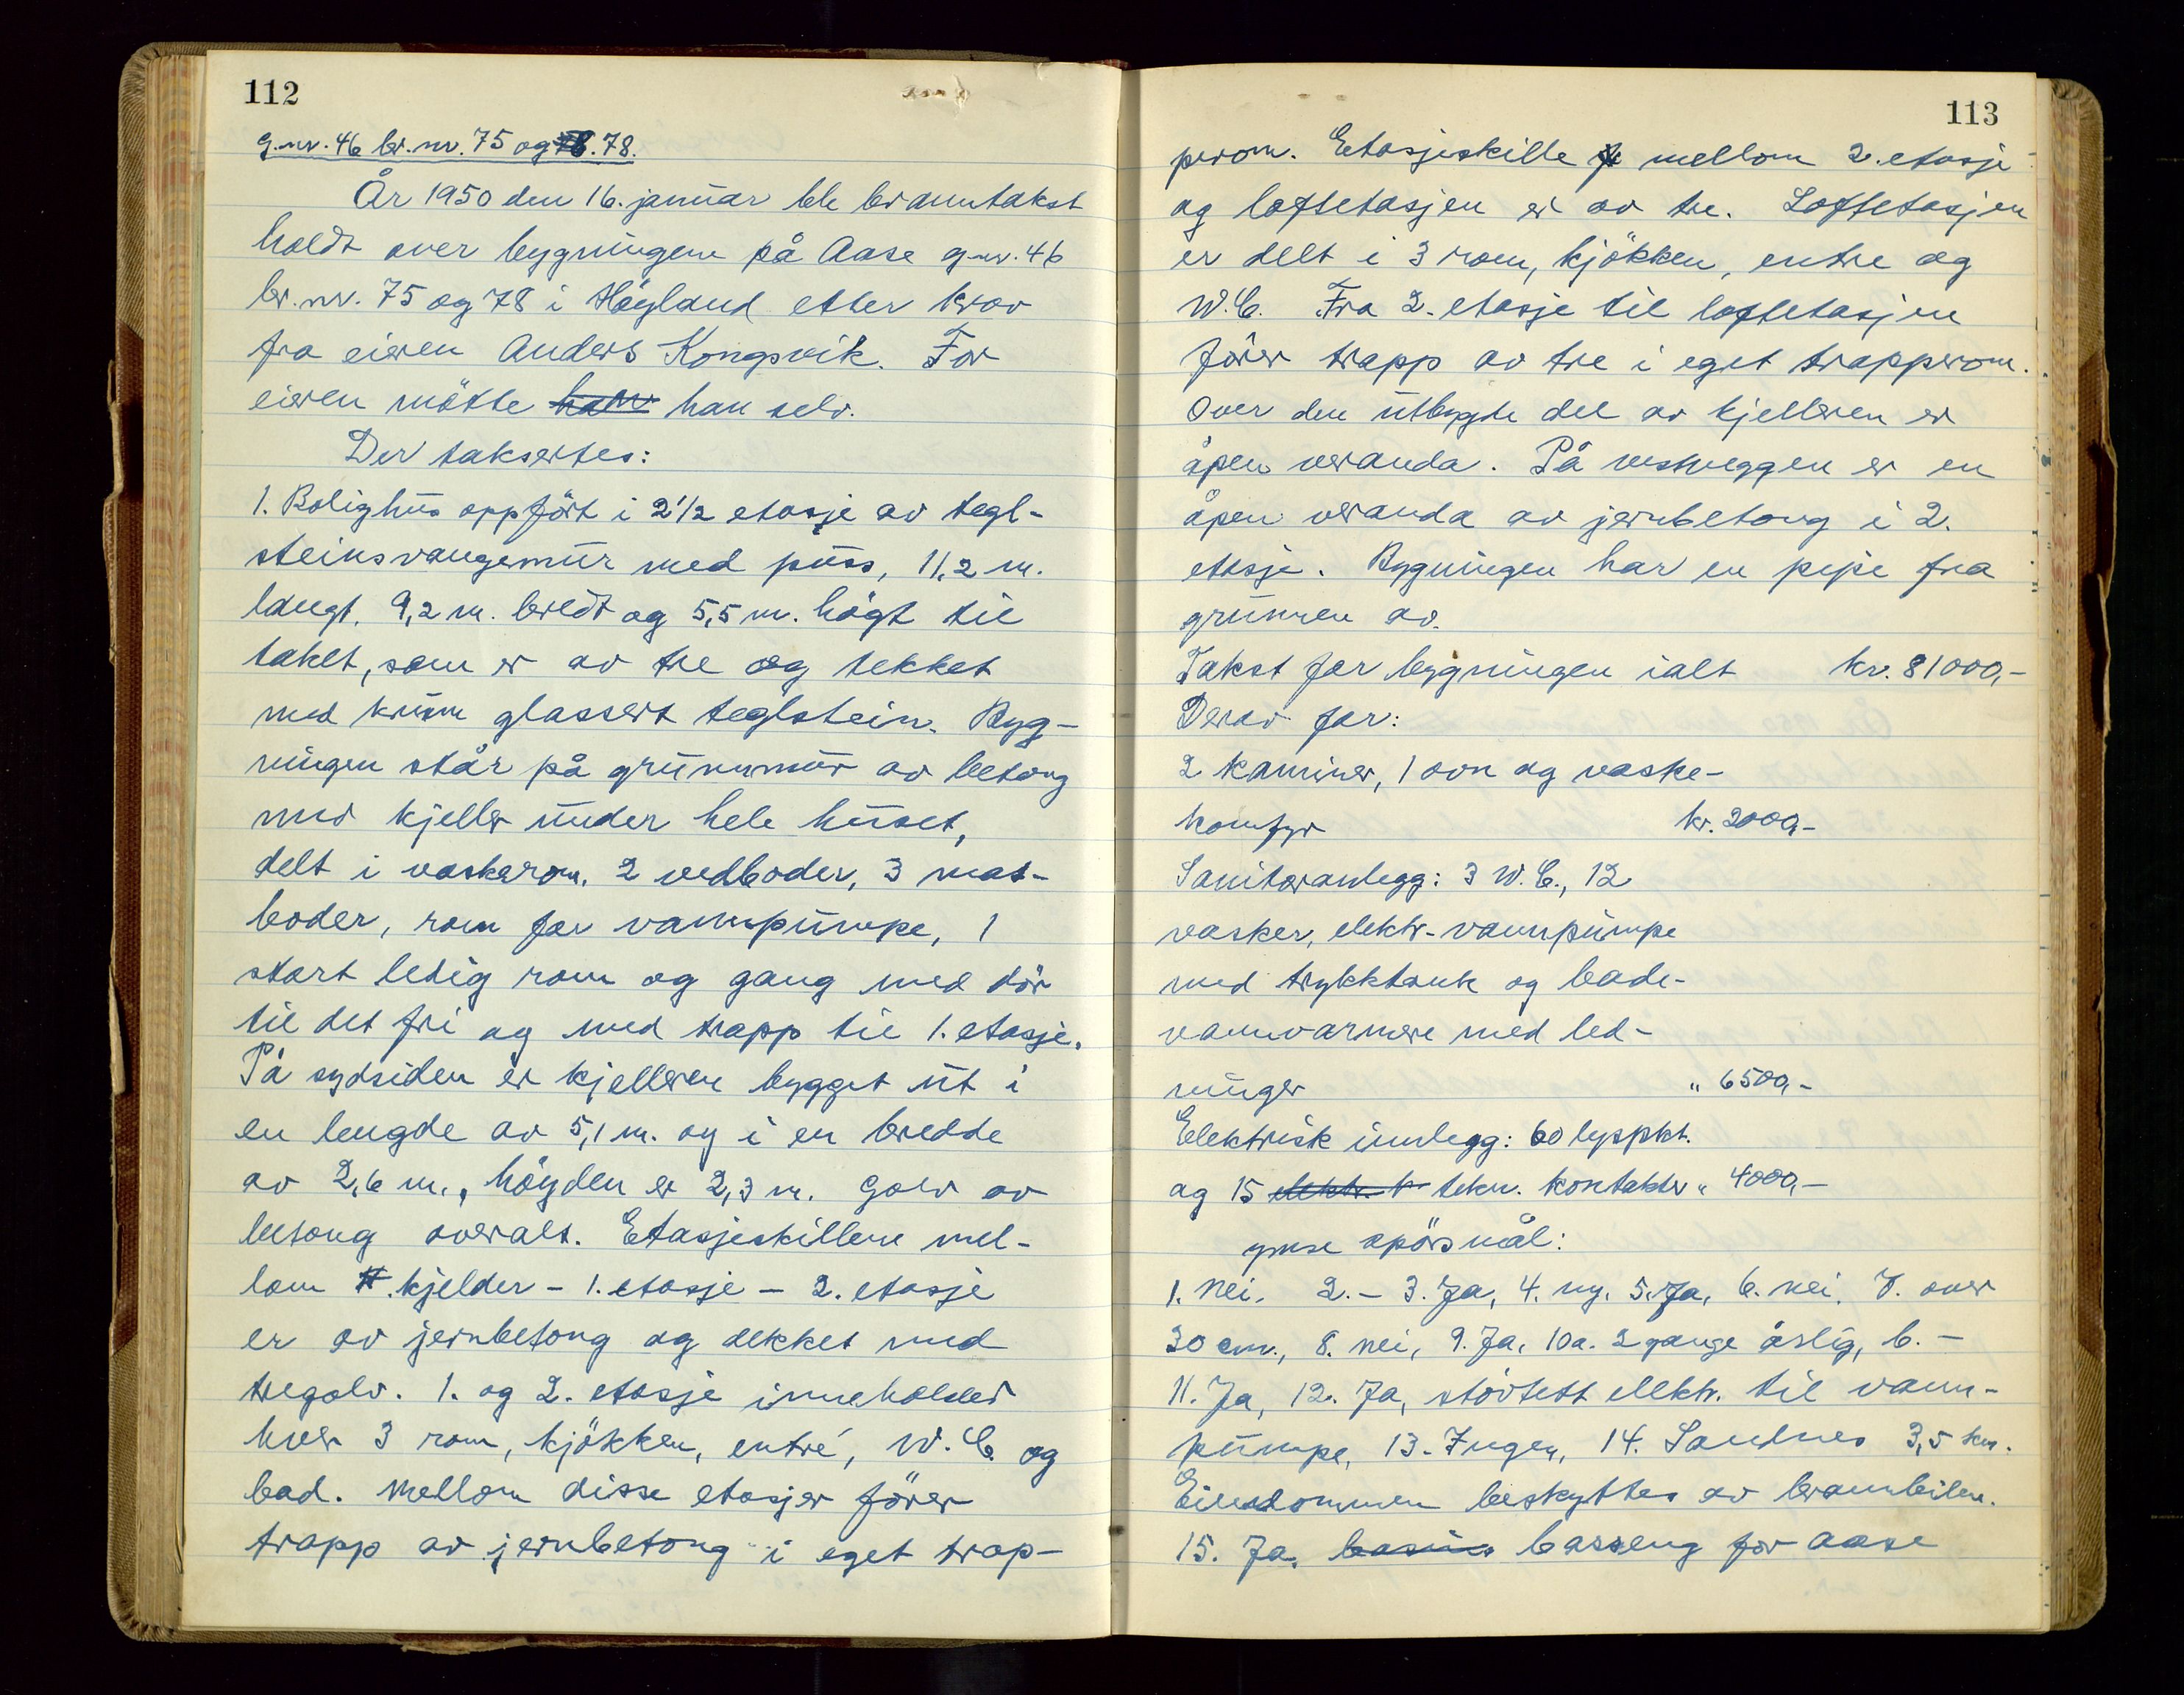 112
g.nr. 46 br.nr. 75 og 78.
År 1950 den 16. januar ble branntakst
holdt over bygningene på Aase g.nr. 46
br.nr. 75 og 78 i Høyland etter krav
fra eieren Anders Kongsvik. For
eieren møtte han selv.
Der taksertes:
1. Bolighus oppført i 2 1/2 etasje av tegl-
steinsvangemur med puss, 11,2 m.
langt, 9,2 m. bredt og 5,5 m. høgt til
taket, som er av tre og tekket
med krum glassert teglstein. Byg-
ningen står på grunnmur av betong
med kjeller under hele huset,
delt i vaskerom, 2 vedboder, 3 mat-
boder, rom for vannpumpe, 1
stort ledig rom og gang med dör
til det fri og med trapp til 1. etasje.
På sydsiden er kjelleren bygget ut i
en lengde av 5,1 m. og i en bredde
av 2,6 m., höyden er 2,3 m. Golv av
betong overalt. Etasjeskillene mel-
lom kjelder - 1. etasje - 2. etasje
er av jernbetong og dekket med
tregolv. 1. og 2. etasje inneholder
hver 3 rom, kjökken, entré, W.C. og
bad. Mellom disse etasjer förer
trapp av jernbetong i eget trap-
113
perom. Etasjeskille mellom 2. etasje
og loftetasjen er av tre. Loftetasjen
er delt i 3 rom, kjökken, entre og
W.C. Fra 2. etasje til loftetasjen
förer trapp av tre i eget trapperom.
Over den utbygde del av kjelleren er
åpen veranda. På vestveggen er en
åpen veranda av jernbetong i 2.
etasje. Bygningen har en pipe fra
grunnen av.
Takst for bygningen ialt kr. 81000,-
Derav for:
2 kaminer, 1 ovn og vaske-
komfyr kr. 2000,-
Sanitæranlegg: 3 W.C., 12
vasker, elektr. vannpumpe
med trykktank og bade-
vannvarmere med led-
ninger " 6500,-
Elektrisk innlegg: 60 lyspkt.
og 15 tekn. kontakter " 4000,-
ymse spörsmål:
1. Nei. 2. - 3. Ja, 4. ny. 5. Ja, 6. nei, 7. over
30 cm., 8. nei, 9. Ja, 10a. 2 gange årlig, b. -
11. Ja, 12. Ja, störtett elektr. til vann-
pumpe, 13. Ingen, 14. Sandnes 3,5 km.
Eiendommen beskyttes av brannbilen.
15. Ja. basseng for Aase